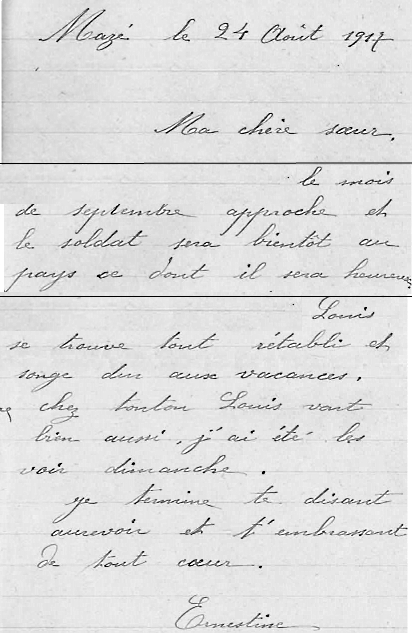 Mazé le 24 Août 1917
Ma chère sœur,
le mois
de septembre approche et
le soldat sera bientôt au
pays ce dont il sera heureux
Louis
se trouve tout rétabli et
songe dur aux vacances.
chez tonton Louis vont
bien aussi, j'ai été les
voir dimanche.
je termine te disant
aurevoir et t'embrassant
de tout cœur.
Ernestine